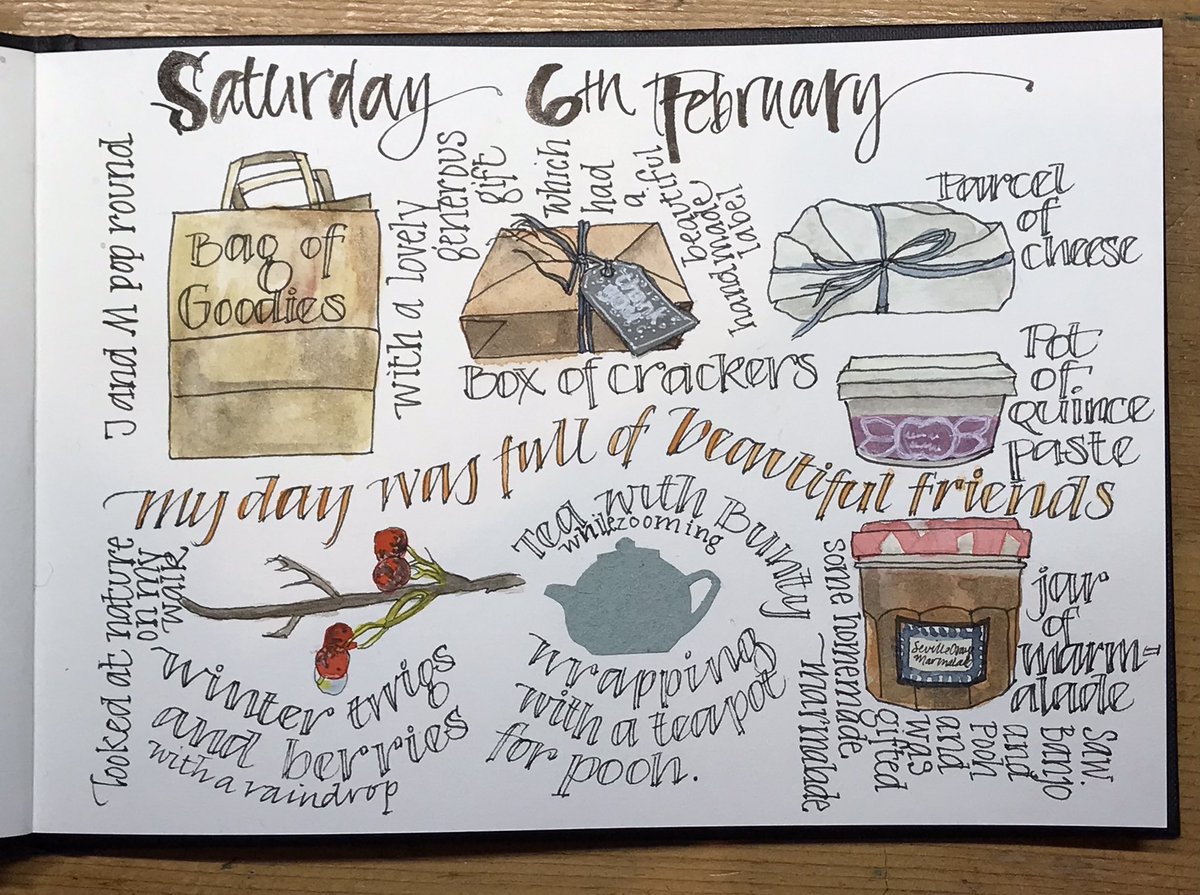 Saturday 6th February
J and M pop round
Bag of
Goodies
with a lovely
generous
gift
which
had
a
beautiful
handmade
label
Box of crackers
Parcel
of
cheese
Pot
of
quince
paste
my day was full of beautiful friends
looked at nature
on my
walk
winter twigs
and berries
with a raindrop
Tea with Bunty
while zooming
wrapping
with a teapot
for pooh.
jar
of
marm=
alade
Marmalade
Saw
Banjo
and
Pooh
and
was
gifted
some homemade
marmalade